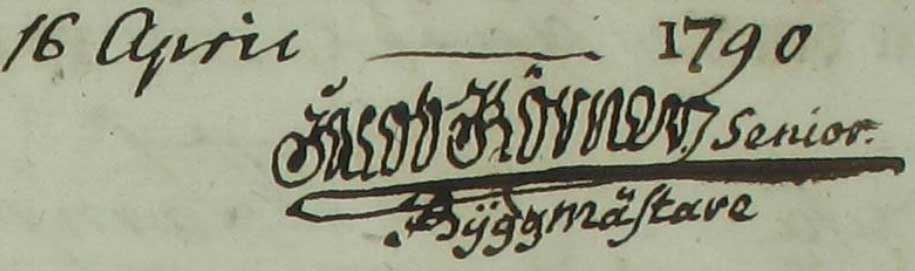 16 April 1790
Jacob Körner Senior.
Byggmästare